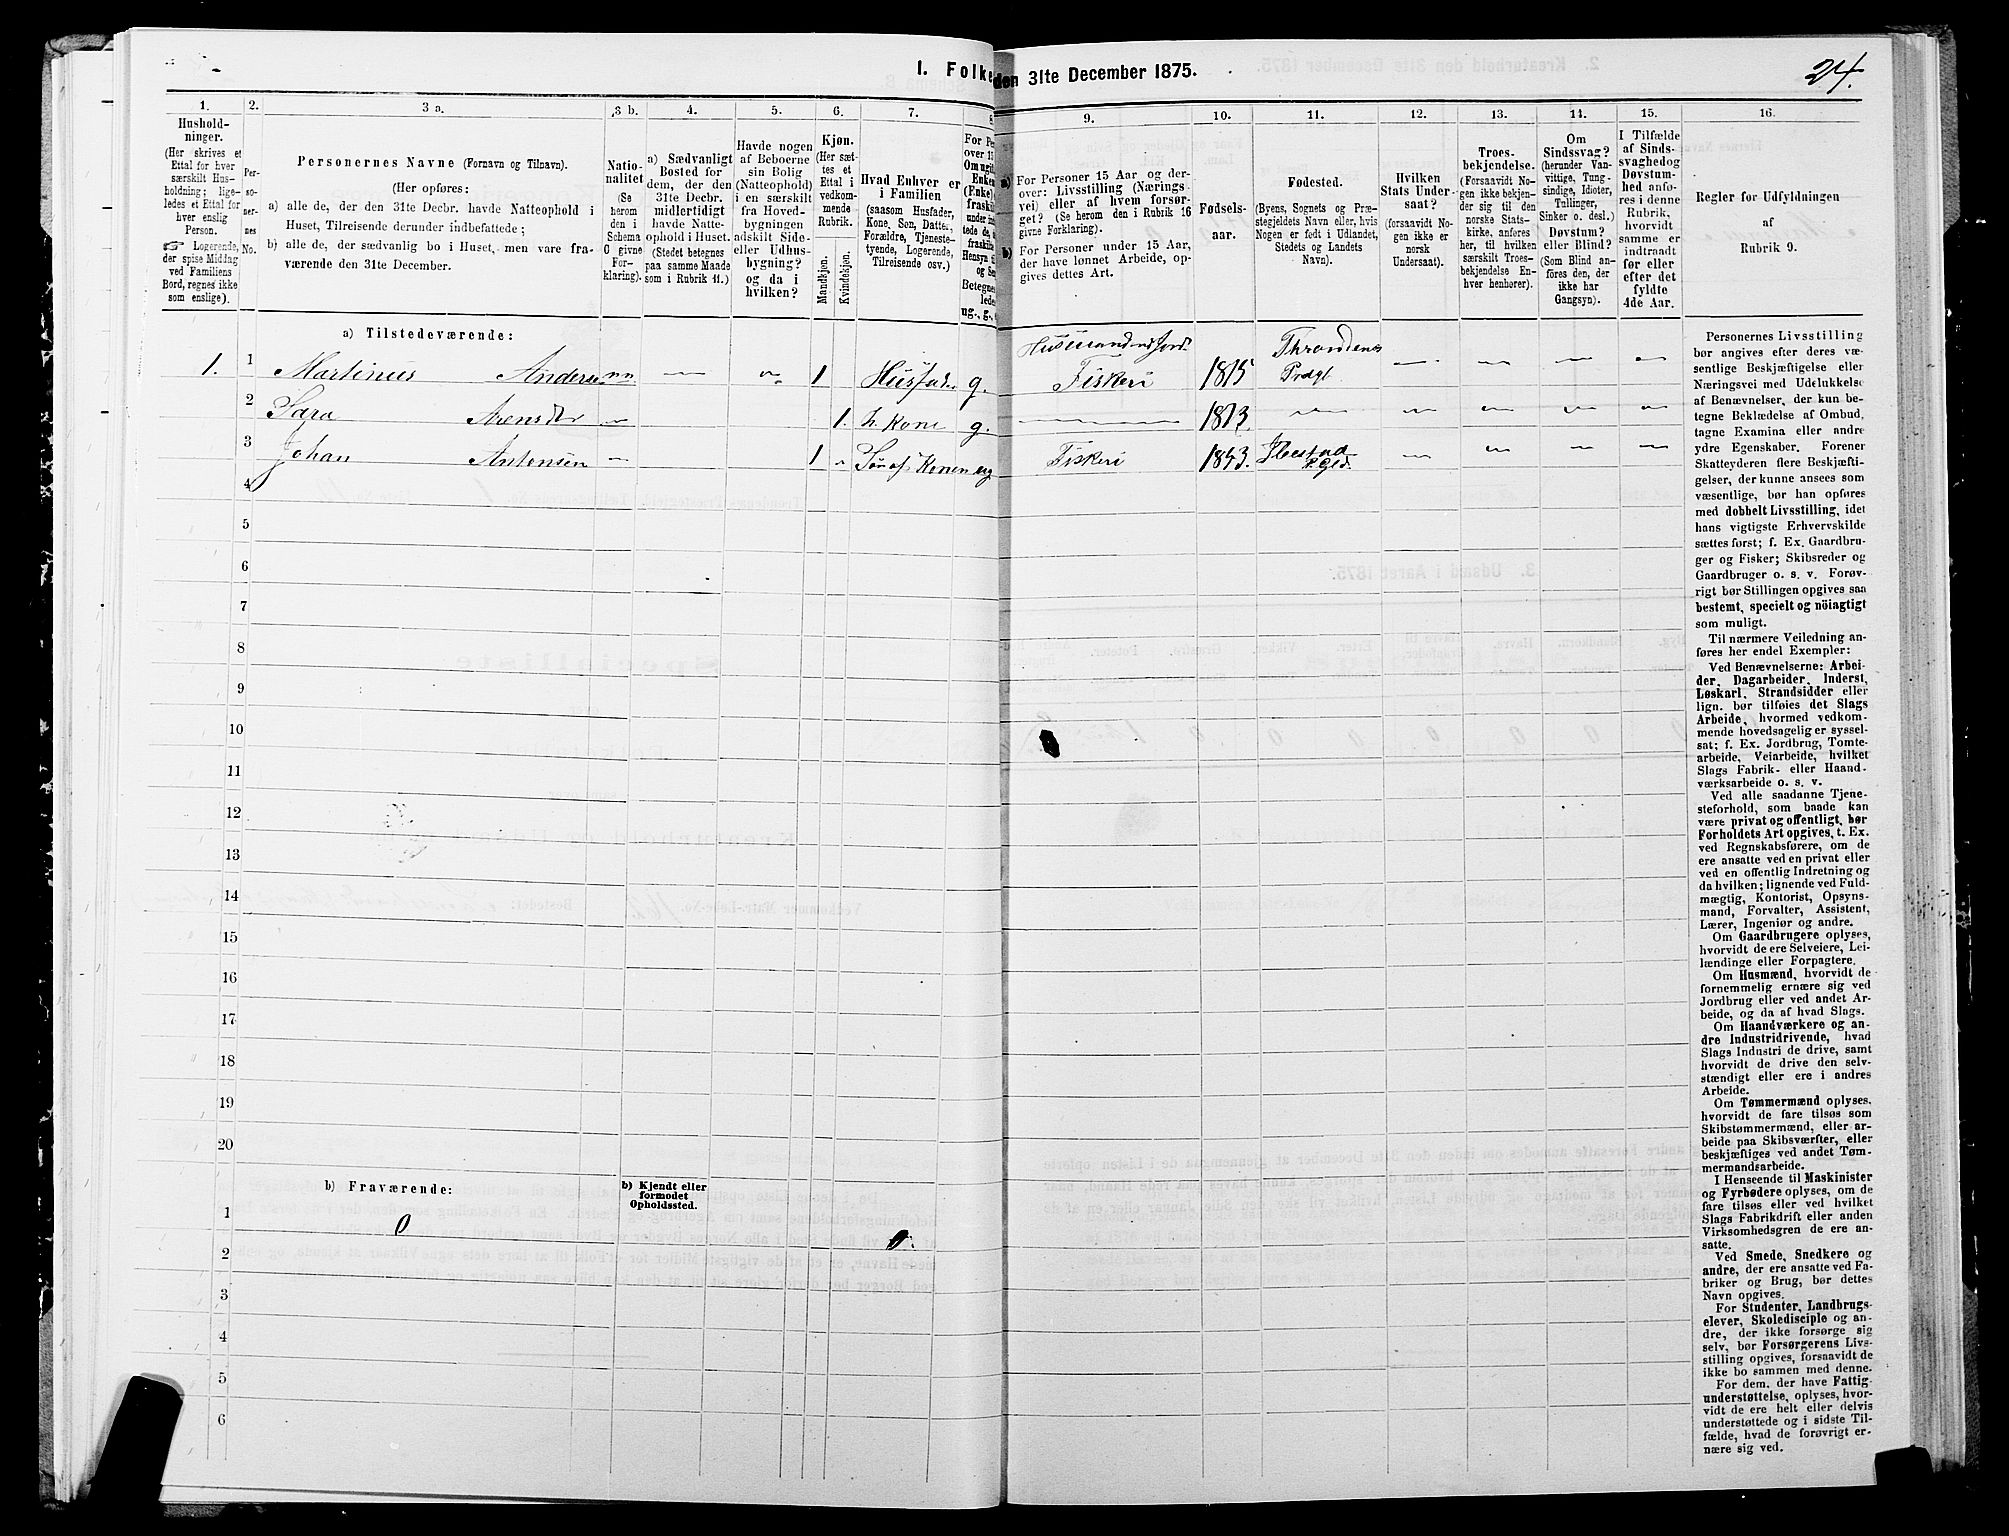 I. Folke
den 31te December 1875.
24.
1.
Hushold-
ninger.
(Her skrives et
Ettal for hver
særskilt Hus-
holdning; lige-
ledes et Ettal for
hver enslig
Person.
☞ Logerende,
der spise Middag
ved Familiens
Bord, regnes ikke
som enslige).
2.
Per-
so-
ner-
nes
No.
3 a.
Personernes Navne (Fornavn og Tilnavn).
(Her opføres:
a) alle de, der den 31te Decbr. havde Natteophold i
Huset, Tilreisende derunder indbefattede;
b) alle de, der sædvanlig bo i Huset, men vare fra-
værende den 31te December.
3 b.
Natio-
nalitet
(Se
herom
den i
Schema
O givne
For-
klaring).
4.
a) Sædvanligt
Bosted for
dem, der den
31te Decbr.
midlertidigt
havde Natte-
ophold i Huset.
(Stedet betegnes
paa samme Maade
som i Rubrik 11.)
5.
Havde nogen
af Beboerne
sin Bolig
(Natteophold)
i en særskilt
fra Hoved-
bygningen
adskilt Side-
eller Udhus-
bygning?
og da i
hvilken?
6.
Kjøn.
(Her sæt-
tes et
Ettal i
vedkom-
mende
Rubrik.
Mandkjøn.
Kvindekjøn.
7.
Hvad Enhver er
i Familien
(saasom Husfader,
Kone, Søn, Datter,
Forældre, Tjeneste-
tyende, Logerende,
Tilreisende osv.)
8
For Pe
over 15
Om ugif
Enken
(Enke)
fraskil
under in
tede de,
fraskilt
Hensyn ti
og Se
Betegnes
lede
ug., g.,
9.
a) For Personer 15 Aar og der-
over: Livsstilling (Nærings-
vei) eller af hvem forsør-
get? (Se herom den i Rubrik 16
givne Forklaring).
b) For Personer under 15 Aar,
der have lønnet Arbeide, op-
gives dettes Art.
10.
Fødsels-
aar.
11.
Fødested.
(Byens, Sognets og Præ-
stegjeldets Navn eller, hvis
Nogen er født i Udlandet,
Stedets og Landets
Navn).
12.
Hvilken
Stats Under-
saat?
(forsaavidt No-
gen ikke er
norsk
Undersaat).
13.
Troes-
bekjendelse.
(Forsaavidt No-
gen ikke bekjen-
der sig til den
norske Stats-
kirke, anføres
her, til hvilken
særskilt Troes-
bekjendelse En-
hver henhører).
14.
Om
Sindssvag?
(herunder Van-
vittige, Tung-
sindige, Idioter,
Tullinger,
Sinker o. desl.)
Døvstum?
eller Blind?
(Som Blind an-
føres den, der
ikke har
Gangsyn).
15.
I Tilfælde
af Sinds-
svaghedog
Døvstum-
hed anfø-
res i denne
Rubrik,
hvorvidt
samme er
indtraadt
før eller
efter det
fyldte
4de Aar.
16.
Regler for Udfyldningen
af
Rubrik 9.
a) Tilstedeværende:
1. 1 Martinus Anderse nn — 1 Husfad. g. Husmand m Jord. Fiskeri 1815 Throndenæs Prægt — — — —
2 Sara Arensdtr — 1. h. Kone g. — 1813 — — — — —
3 Johan Antonsen — 1 Søn af Konen ug Fiskeri 1853. Ibestad P.Gld. — — — —
4
5
6
7
8
9
10
11
12
13
14
15
16
17
18
19
20
b) Fraværende:
b) Kjendt eller
formodet
Opholdssted.
1
0
0.
2
3
4
5
6
Personernes Livsstilling
bør angives efter deres væ-
sentlige Beskjæftigelse eller
Næringsvei med Udelukkelse
af Benævnelser, der kun be-
tegne Beklædelse af Ombud,
tagne Examina eller andre
ydre Egenskaber. Forener
Skatteyderen flere Beskjæfti-
gelser, der kunne ansees som
væsentlige, bør han opføres
med dobbelt Livsstilling, idet
hans vigtigste Erhvervskilde
sættes først; f. Ex. Gaardbru-
ger og Fisker; Skibsreder og
Gaardbruger o. s. v. Forøv-
rigt bør Stillingen opgives saa
bestemt, specielt og nöiagtigt
som muligt.
Til nærmere Veiledning an-
føres her endel Exempler:
Ved Benævnelserne: Arbei-
der, Dagarbeider, Inderst,
Løskarl, Strandsidder eller
lign. bør tilføies det Slags
Arbeide, hvormed vedkom-
mende hovedsagelig er syssel-
sat; f. Ex. Jordbrug, Tomte-
arbeide, Veiarbeide, hvilket
Slags Fabrik- eller Haand-
værksarbeide o. s. v.
Ved alle saadanne Tjene-
steforhold, som baade kan
være privat og offentligt, bør
Forholdets Art opgives, t. Ex.
ved Regnskabsførere, om de
ere ansatte ved en privat eller
ved en offentlig Indretning og
da hvilken; lignende ved Fuld-
mægtig, Kontorist, Opsyns-
mand, Forvalter, Assistent,
Lærer, Ingeniør og andre.
Om Gaardbrugere oplyses,
hvorvidt de ere Selveiere, Lei-
lændinge eller Forpagtere.
Om Husmænd, hvorvidt de
fornemmelig ernære sig ved
Jordbrug eller ved andet Ar-
beide, og da af hvad Slags.
Om Haandværkere og an-
dre Industridrivende, hvad
Slags Industri de drive, samt
hvorvidt de drive den selv-
stændigt eller ere i andres
Arbeide.
Om Tømmermænd oplyses,
hvorvidt de fare tilsøs som
Skibstømmermænd, eller ar-
beide paa Skibsværfter, eller
beskjæftiges ved andet Tøm-
mermandsarbeide.
I Henseende til Maskinister
og Fyrbødere oplyses, om de
fare tilsøs eller ved hvilket
Slags Fabrikdrift eller anden
Virksomhedsgren de ere an-
satte.
Ved Smede, Snedkere og
andre, der ere ansatte ved Fa-
briker og Brug, bør dettes
Navn opgives.
For Studenter, Landbrugs-
elever, Skoledisciple og an-
dre, der ikke forsørge sig
selv, bør Forsørgerens Livs-
stilling opgives, forsaavidt de
ikke bo sammen med denne.
For dem, der have Fattig-
understøttelse, oplyses, hvor-
vidt de ere helt eller delvis
understøttede og i sidste Til-
fælde, hvad de forøvrigt er-
nære sig ved.